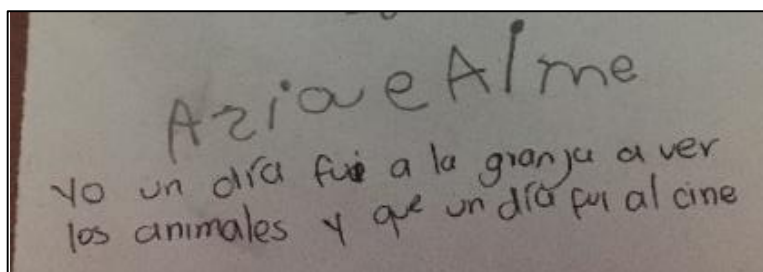 AziaeAlme
Yo un día fui a la granja a ver
los animales y que un día fui al cine